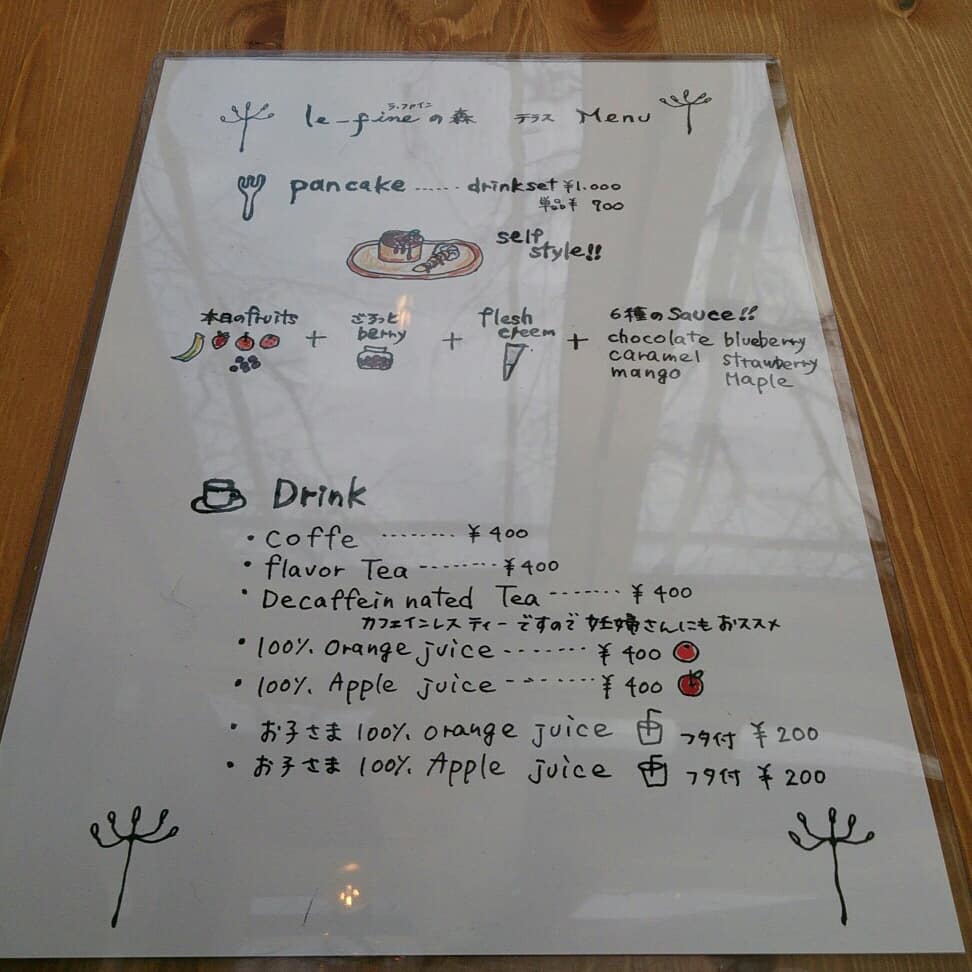 ラ・ファイン
le-fineの森 テラス Menu
pancake ...... drinkset ¥1.000
単品¥ 900
self
style!!
本日のfruits + ごろっと berry + flesh creem + 6種のSauce!!
chocolate blueberry
caramel strawberry
mango Maple
Drink
・coffe ........ ¥400
・flavor Tea -------- ¥400
・Decaffein nated Tea ------- ¥400
カフェインレス ティーですので 妊婦さんにもおススメ
・100% orange juice -------- ¥400
・100% Apple juice -------- ¥400
・お子さま 100% orange juice フタ付 ¥200
・お子さま 100% Apple juice フタ付 ¥200